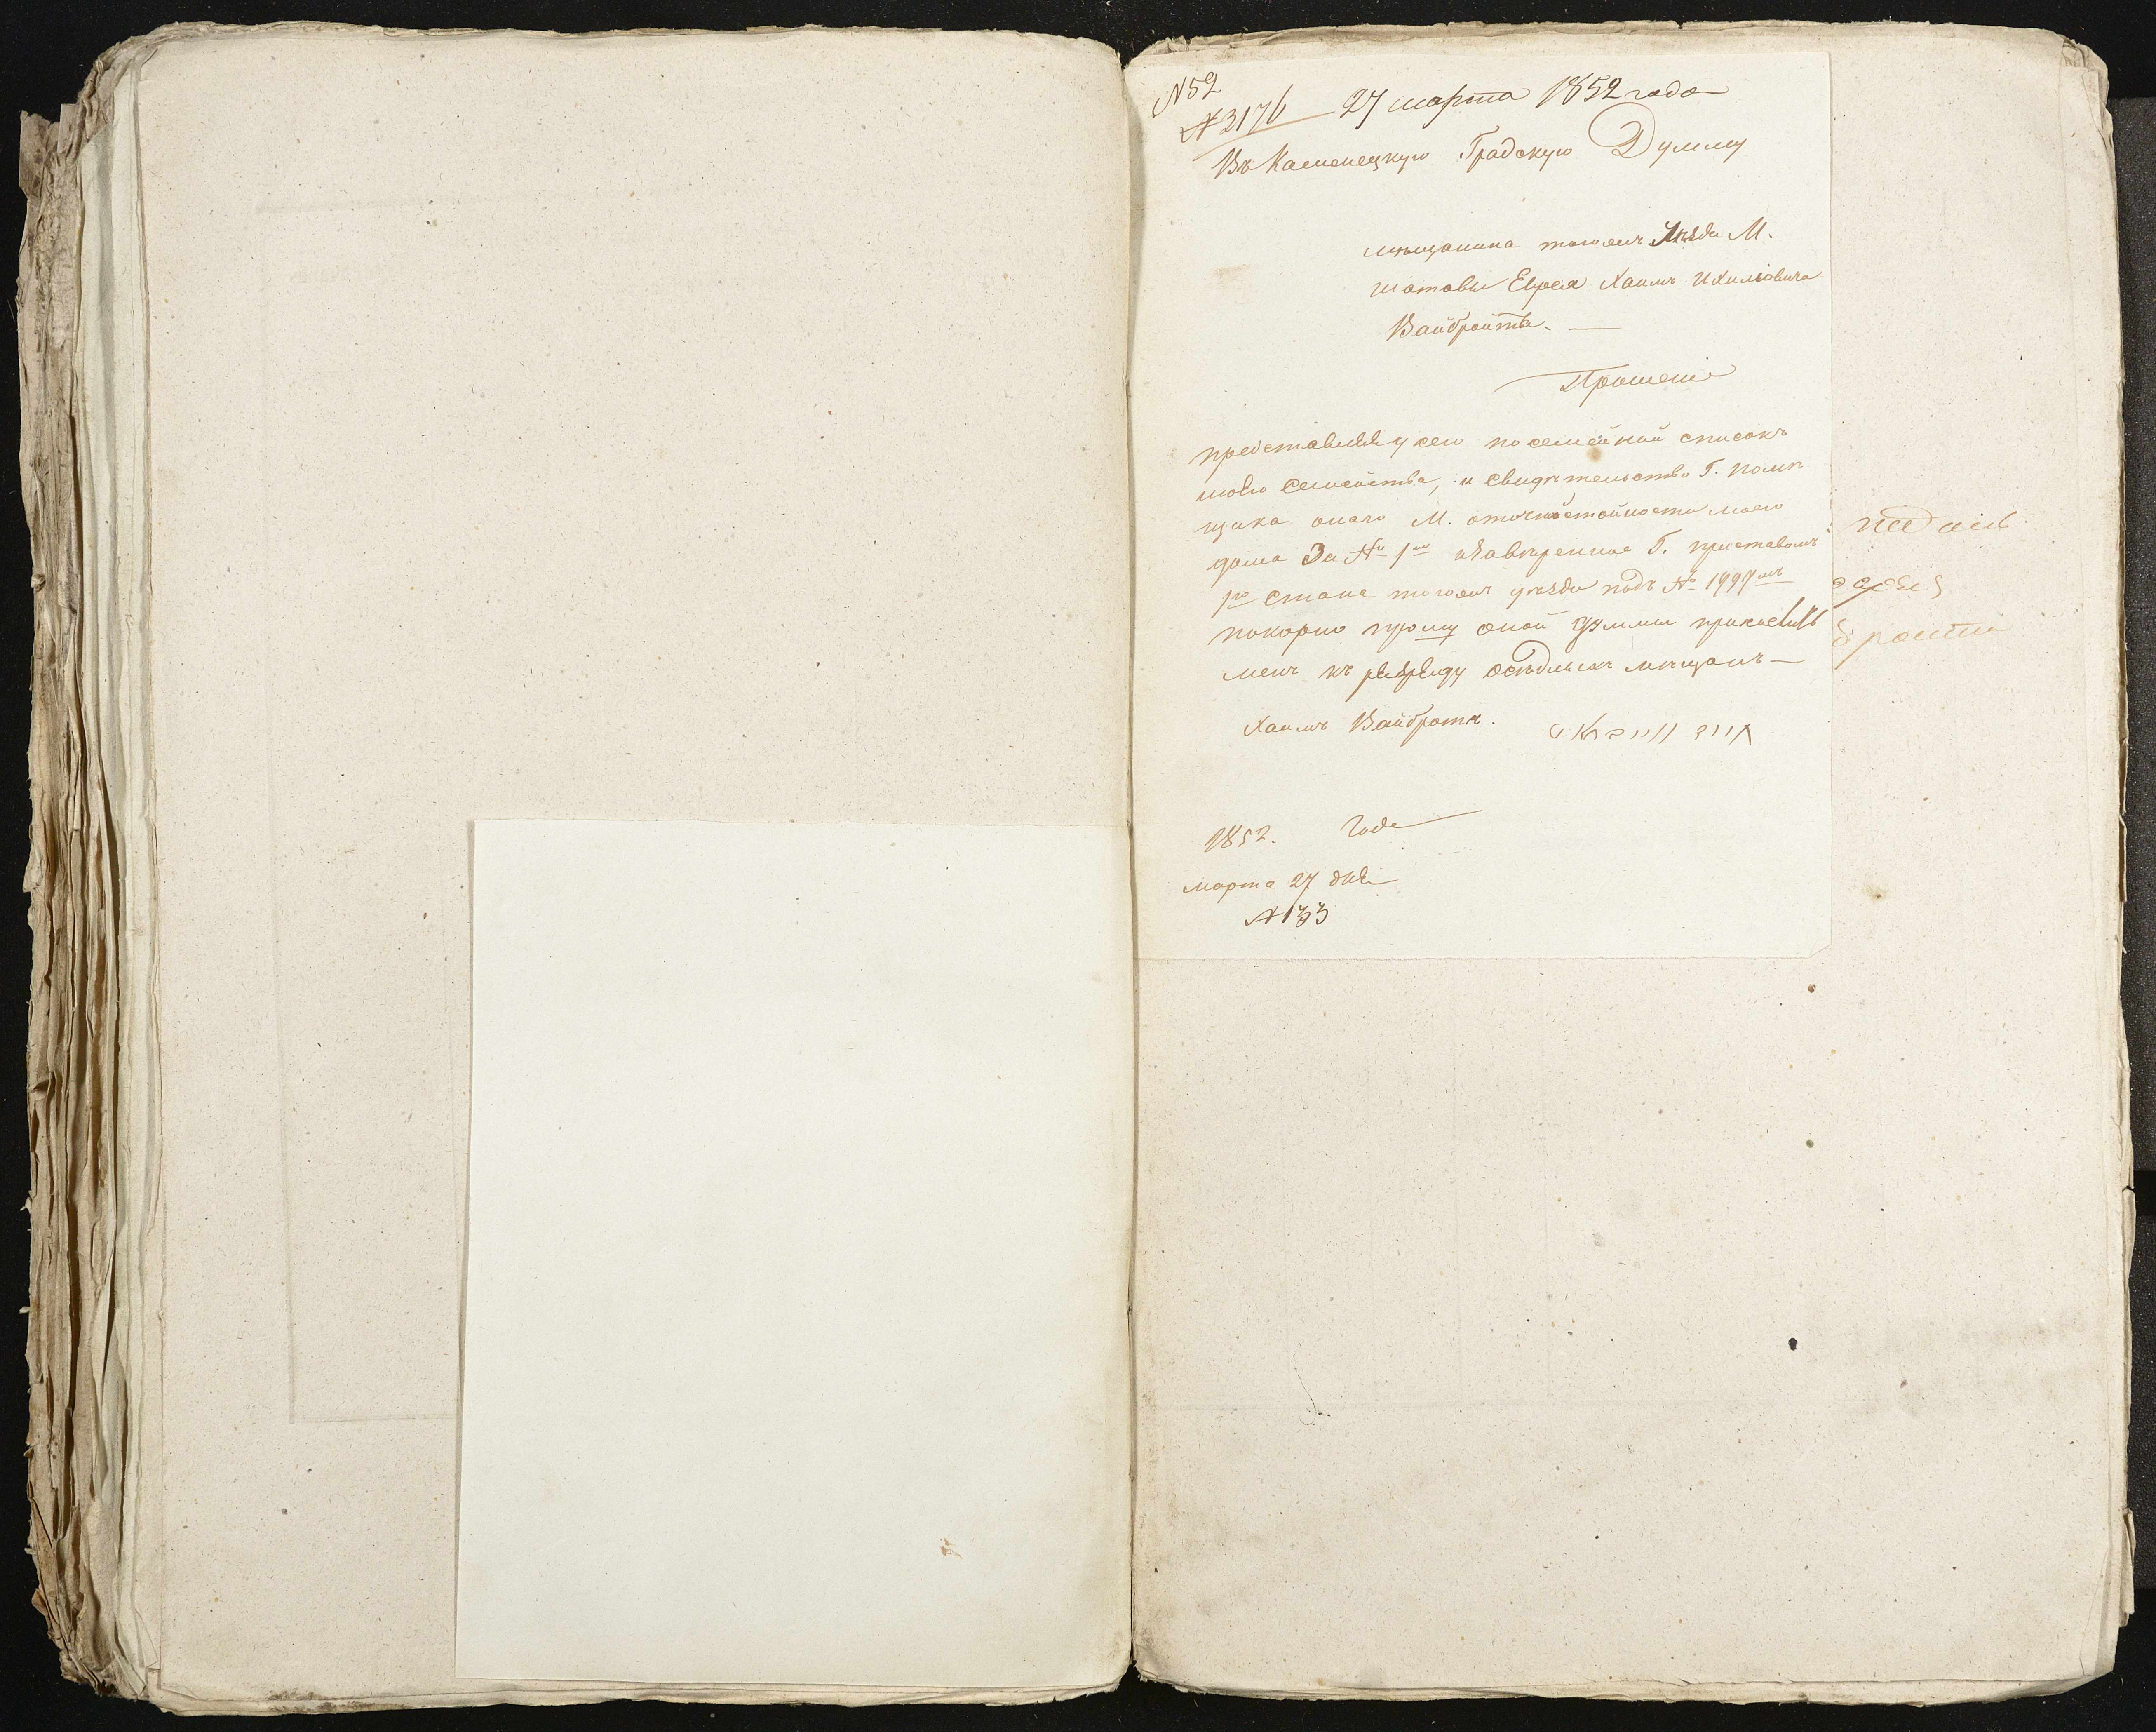 N 52
N 3176 27 марта 1852 года
Въ Каменецкую Градскую Думму
мѣщанина тогожъ Уѣзда М.
Шатавы Еврея Хаимъ Ихилювича
Вайбройта. —
Прошеніе
представляя у сего посемейной списокъ
моего семейства, и свидѣтельство Г. Помѣ
щика онаго М. о
дома За № 1м Г. приставомъ
1го Стана тогожъ уѣзда подъ № 1999мъ
покорно прошу оной думмы
менѣ къ разряду осѣдлыхъ мѣщанъ —
Хаимъ Вайбротъ. חיים ווייבראט
1852. Года
марта 27 дня
N 133